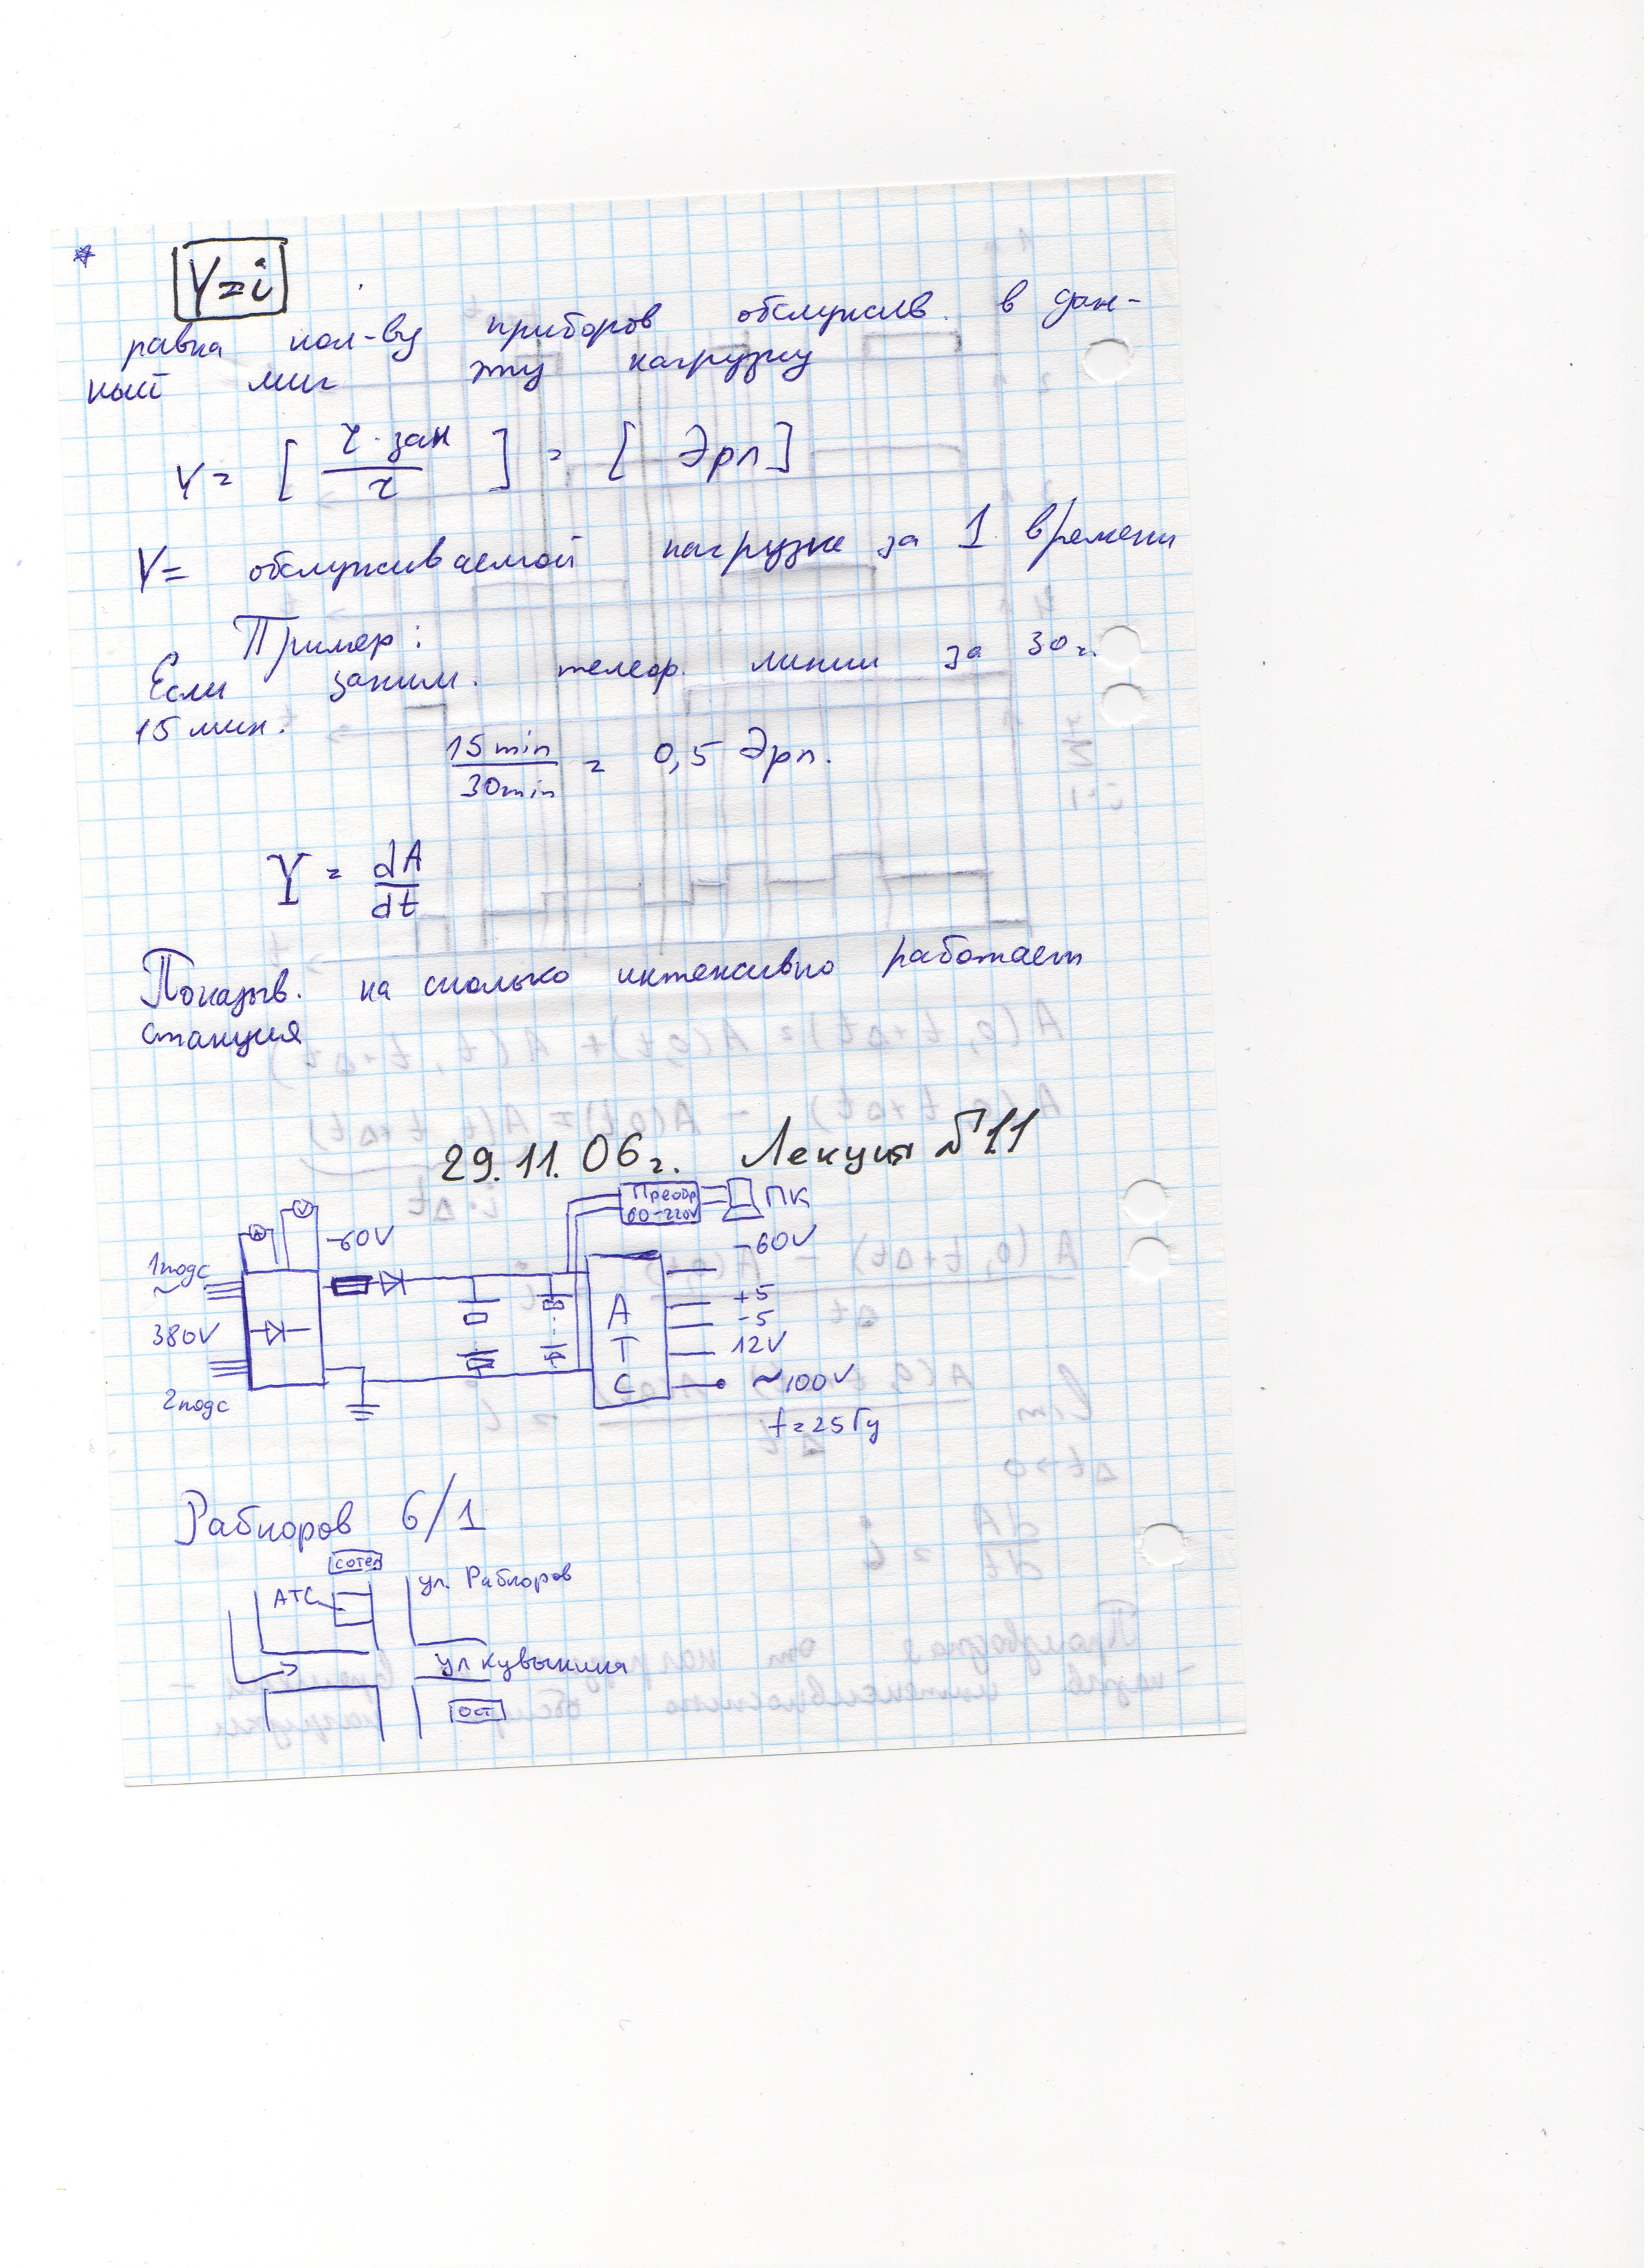 Y=i
равна кол-ву приборов обслужив. в дан-
ный миг эту нагрузку
Y= [ ч·зан / ч ] = [ Эрл ]
Y= обслуживаемой нагрузке за 1 времени
Пример:
Если заним. телеф. линии за 30
15 мин.
15 min / 30 min = 0,5 Эрл.
Y = dA / dt
Показыв. на сколько интенсивно работает
станция
29.11.06г. Лекция №11
Преобр ПК
60-220V
-60V
-60V
1 подс
~
+5
-5
380V
12V
2 подс
АТС
~100V
f=25Гц
Рабкоров 6/1
сотел
АТС
ул. Рабкоров
ул Кувыкина
ост